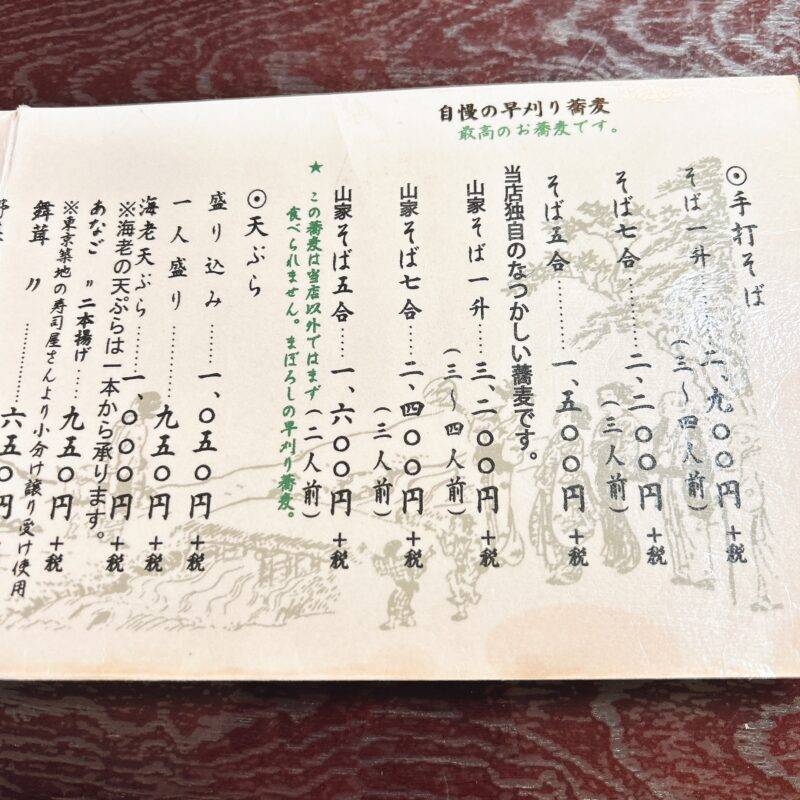 自慢の早刈り蕎麦
最高のお蕎麦です。
⦿手打そば
そば一升……二、九〇〇円+税
(三〜四人前)
そば七合……二、二〇〇円+税
(三人前)
そば五合……一、五〇〇円+税
当店独自のなつかしい蕎麦です。
山家そば一升……三、二〇〇円+税
(三〜四人前)
山家そば七合……二、四〇〇円+税
(三人前)
山家そば五合……一、六〇〇円+税
(二人前)
★この蕎麦は当店以外ではまず
食べられません。まぼろしの早刈り蕎麦。
⦿天ぷら
盛り込み……一、〇五〇円+税
一人盛り……九五〇円+税
海老天ぷら……一、〇〇〇円+税
※海老の天ぷらは一本から承ります。
あなご 〃 二本揚げ……九五〇円+税
※東京築地の寿司屋さんより小分け譲り受け使用
舞茸 〃 ……六五〇円+税